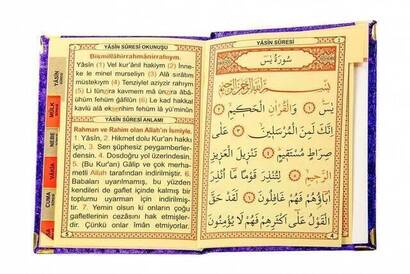 YÂSİN SÛRESİ OKUNUŞU
Bismillâhirrahmânirrahıym.
Yâsîn (1) Vel kur'ânil hakiym (2) İnne-
ke le minel murseliyn (3) Alâ sırâtım
müstekıym (4) Tenziylel aziyzirrahıym
(5) Li tünzira kavmem mâ ünzira âbâü-
hüm fehüm ğâfilûn (6) Le kad hakkal
kavlü alâ ekserihim fehüm lâ yü'minûn
YÂSİN SÛRESİ ANLAMI
Rahman ve Rahim olan Allah'ın İsmiyle.
1. Yâsîn, 2. Hikmet dolu Kur'an hak-
kı için, 3. Sen şüphesiz peygamberler-
densin. 4. Dosdoğru yol üzerindesin.
5. (Bu Kur'an) Gâlip ve çok merha-
metli Allah tarafından indirilmiştir. 6.
Babaları uyarılmamış, bu yüzden
kendileri de gaflet içinde kalmış bir
toplumu uyarman için indirilmiş-
tir. 7. Yemin olsun ki onların çoğu
gafletlerinin cezasını hak etmişler-
dir. Çünkü onlar îman etmiyorlar.
YÂSİN
MÜLK
NEBE
VAKIA
CUMA
YÂSİN SÛRESİ
سُورَةُ يٰسٓ
بِسْمِ اللّٰهِ الرَّحْمٰنِ الرَّحِيمِ
يٰسٓ ﴿١﴾ وَالْقُرْاٰنِ الْحَكِيمِ ﴿٢﴾
اِنَّكَ لَمِنَ الْمُرْسَلِينَ ﴿٣﴾ عَلٰى
صِرَاطٍ مُسْتَقِيمٍ ﴿٤﴾ تَنْزِيلَ الْعَزِيزِ
الرَّحِيمِ ﴿٥﴾ لِتُنْذِرَ قَوْمًا مَا اُنْذِرَ
اٰبَاؤُهُمْ فَهُمْ غَافِلُونَ ﴿٦﴾ لَقَدْ حَقَّ
الْقَوْلُ عَلٰى اَكْثَرِهِمْ فَهُمْ لَا يُؤْمِنُونَ